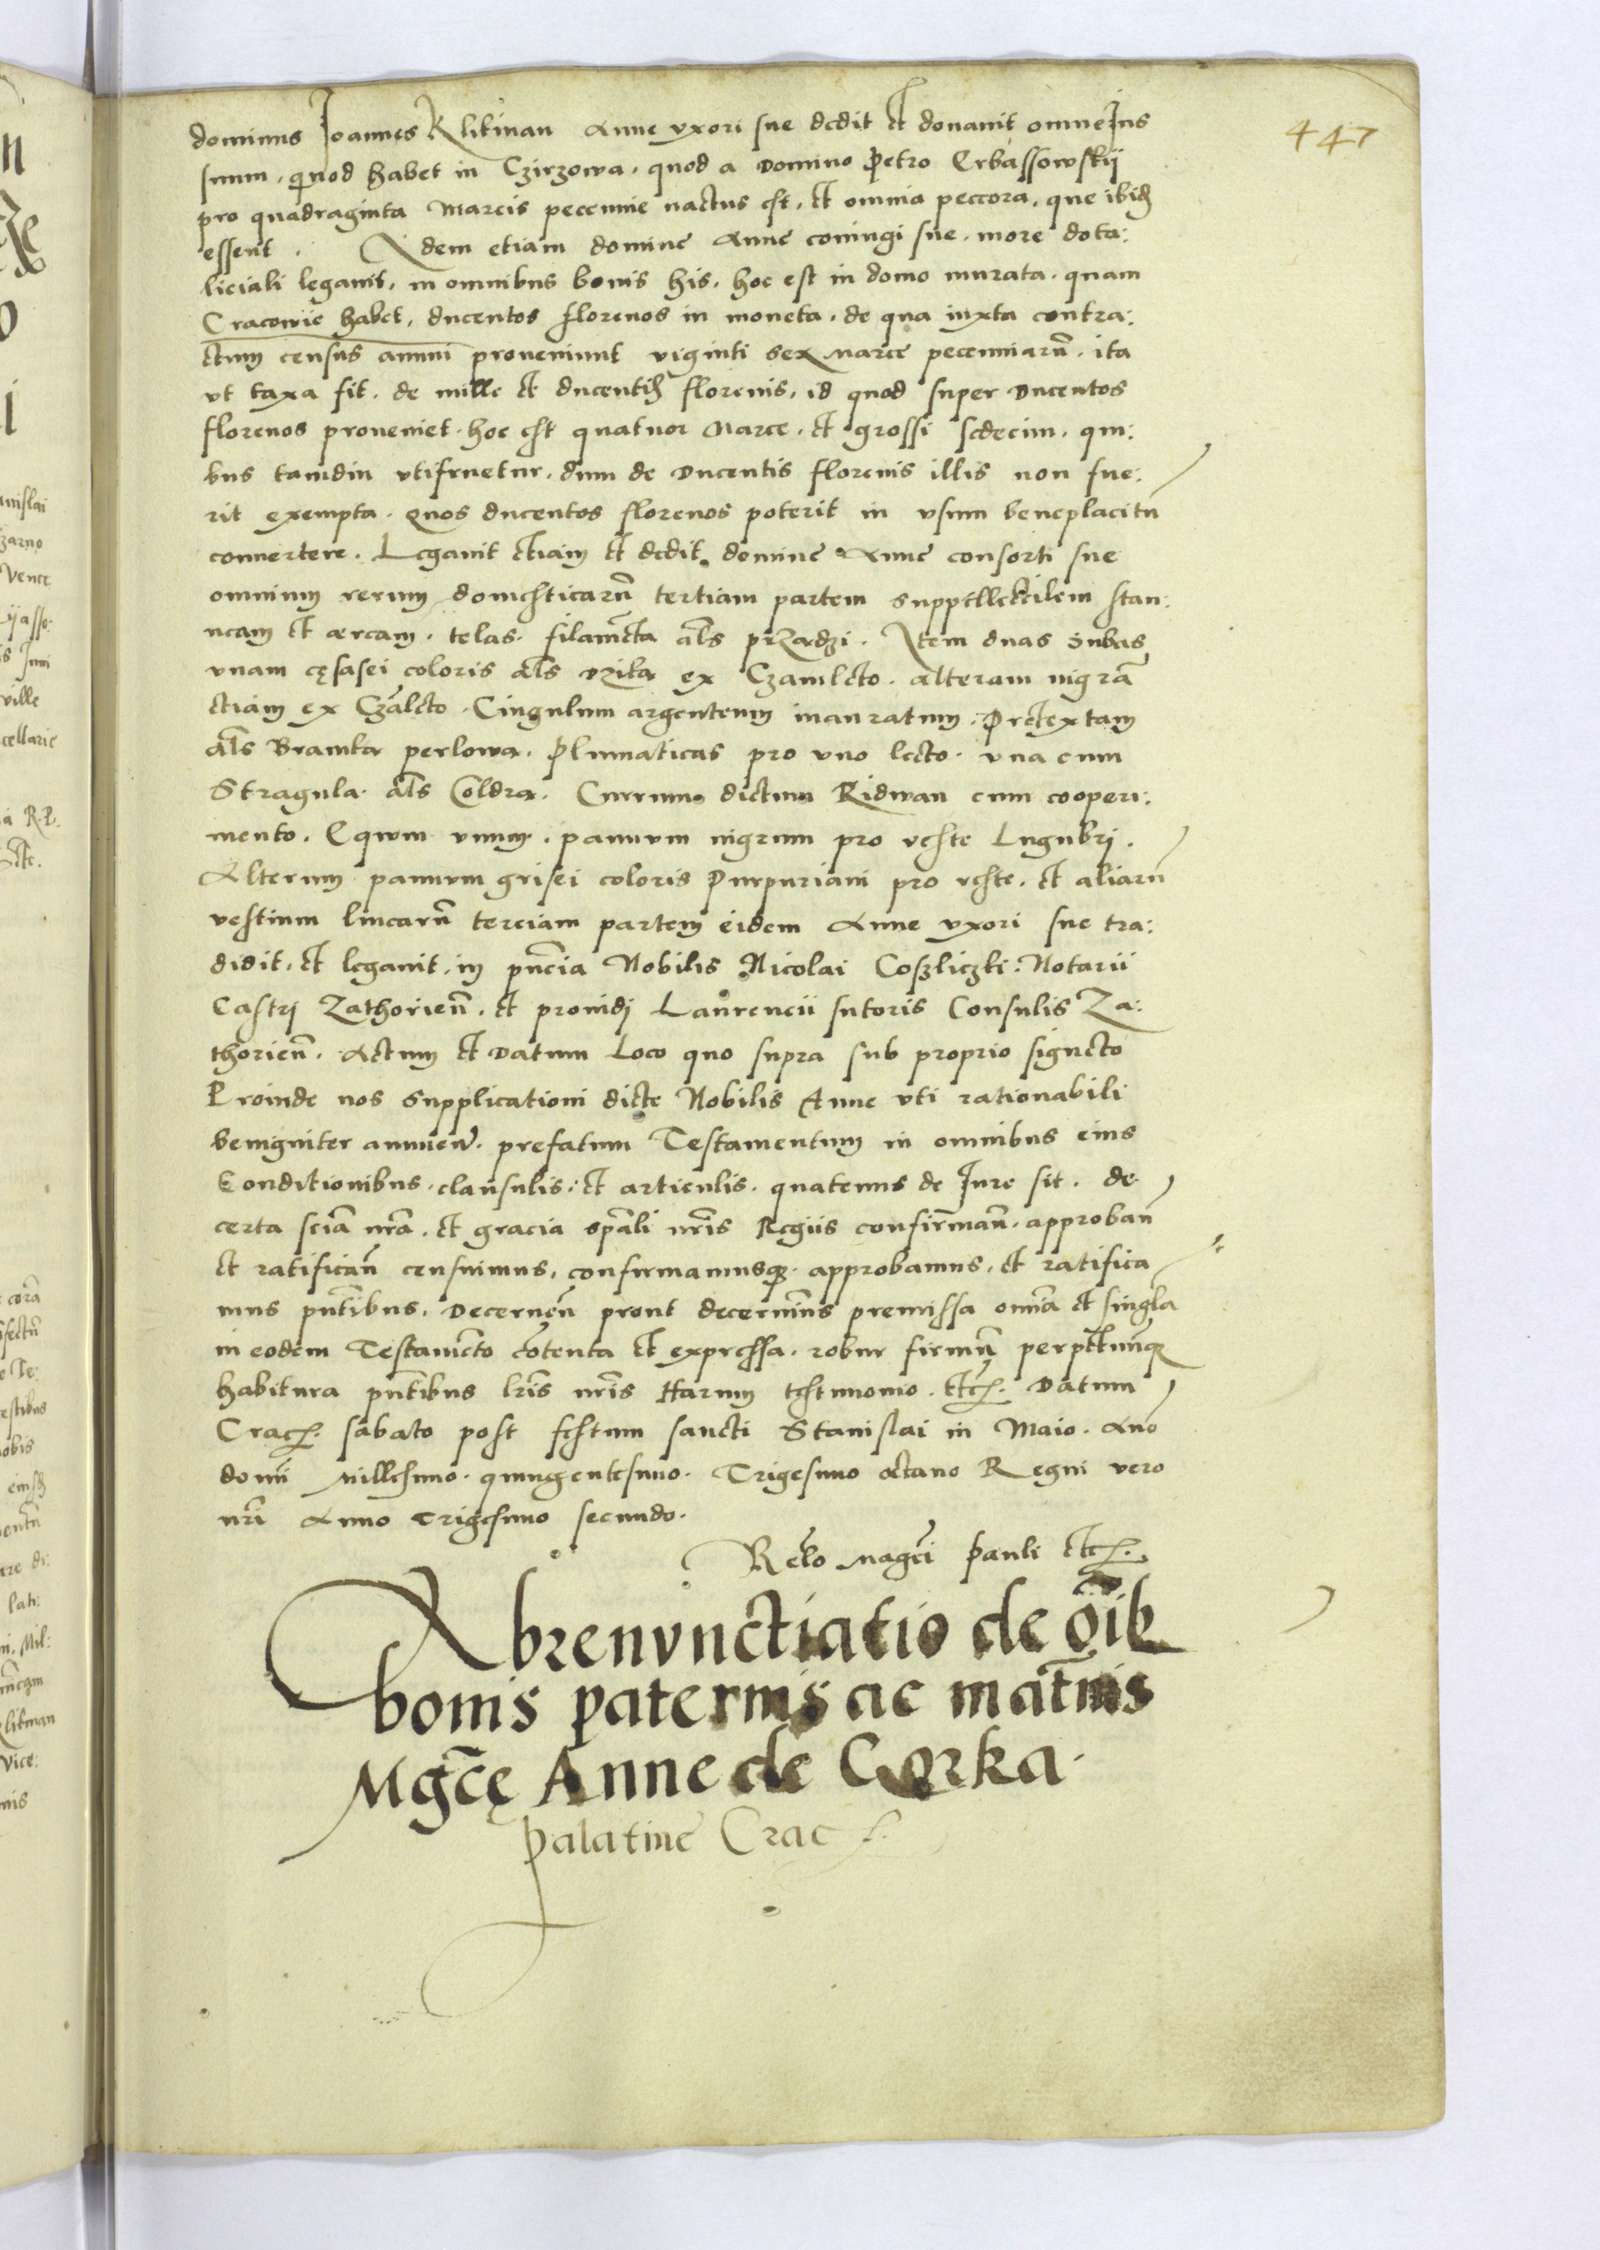 447
dominus Joannes Klitman Anne vxori sue dedit et donauit omne Jus
suum, quod habet in Czirzowa, quod a Domino Petro Erbassowskij
pro quadraginta Marcis peccunie nactus est, et omnia peccora, que ibidē
essent. Idem etiam domine Anne coniugi sue, more dota:
liciali legauit, in omnibus bonis his, hoc est in domo murata, quam
Cracouie habet, ducentos florenos in moneta, de qua iuxta contra:
ctum census annui proueniunt viginti sex marce peccuniarū, ita
vt taxa fit, de mille et ducentis florenis, id quod super Ducentos
florenos proueniet, hoc est quatuor Marce, et grossi sedecim, qui:
bus tamdiu vtifruetur, dum de Ducentis florenis illis non fue:
rit exempta, quos ducentos florenos poterit in vsum beneplacitū
conuertere. Legauit etiam et dedit domine Anne consorti sue
omnium rerum domesticarū tertiam partem suppellectilem stan:
neam et æream, telas, filamēta als przadzi. Item duas subas
vnam cęsasei coloris als ex Czamleto, alteram nigrā
etiam ex Czāleto. Cingulum argenteum inauratum. Pretextam
als Bramka perlowa. Plumaticas pro vno lecto, vna cum
Stragula als Coldra. Currum dictum Ridwan cum cooperi:
mento. Eqwm vnum, pannvm nigrum pro veste Lugubrj.
Alterum pannvm grisei coloris Purpuriani pro veste, et aliarū
vestium linearū terciam partem eidem Anne vxori sue tra:
didit, et legauit, in pn̄cia Nobilis Nicolai Coszliczki Notarii
Castrj Zathorien̄, et prouidj Laurencii sutoris Consulis Za:
thorien̄. Actum et Datum Loco quo supra sub proprio signeto
Proinde nos supplicationi dicte Nobilis Anne vti rationabili
benigniter annuen̄, prefatum Testamentum in omnibus eius
Conditionibus, clausulis, et articulis, quatenus de Jure sit, de
certa sciā nrā, et gracia spāli nrīs Regiis confirmann̄, approbann̄
et ratificān̄ censuimus, confirmamusq3 approbamus, et ratifica
mus pn̄tibus, Decernēn̄ prout decernim̄us premissa omīa et singla
in eodem Testamēto cōtenta et expressa, robur firmū perpetuūq3
habitura pn̄tibus lrīs nrīs Harum testimonio etc. Datum
Crac. sabato post festum sancti Stanislai in Maio. Anō
domī Millesimo quingentesimo Trigesimo octauo Regni vero
nrī Anno Trigesimo secundo.
Relō Magcī Pauli etc.
Abrenvnctiatio de oīb
bonis paternis ac matn̄is
Mgcē Anne de Gorka.
Palatine Crac.